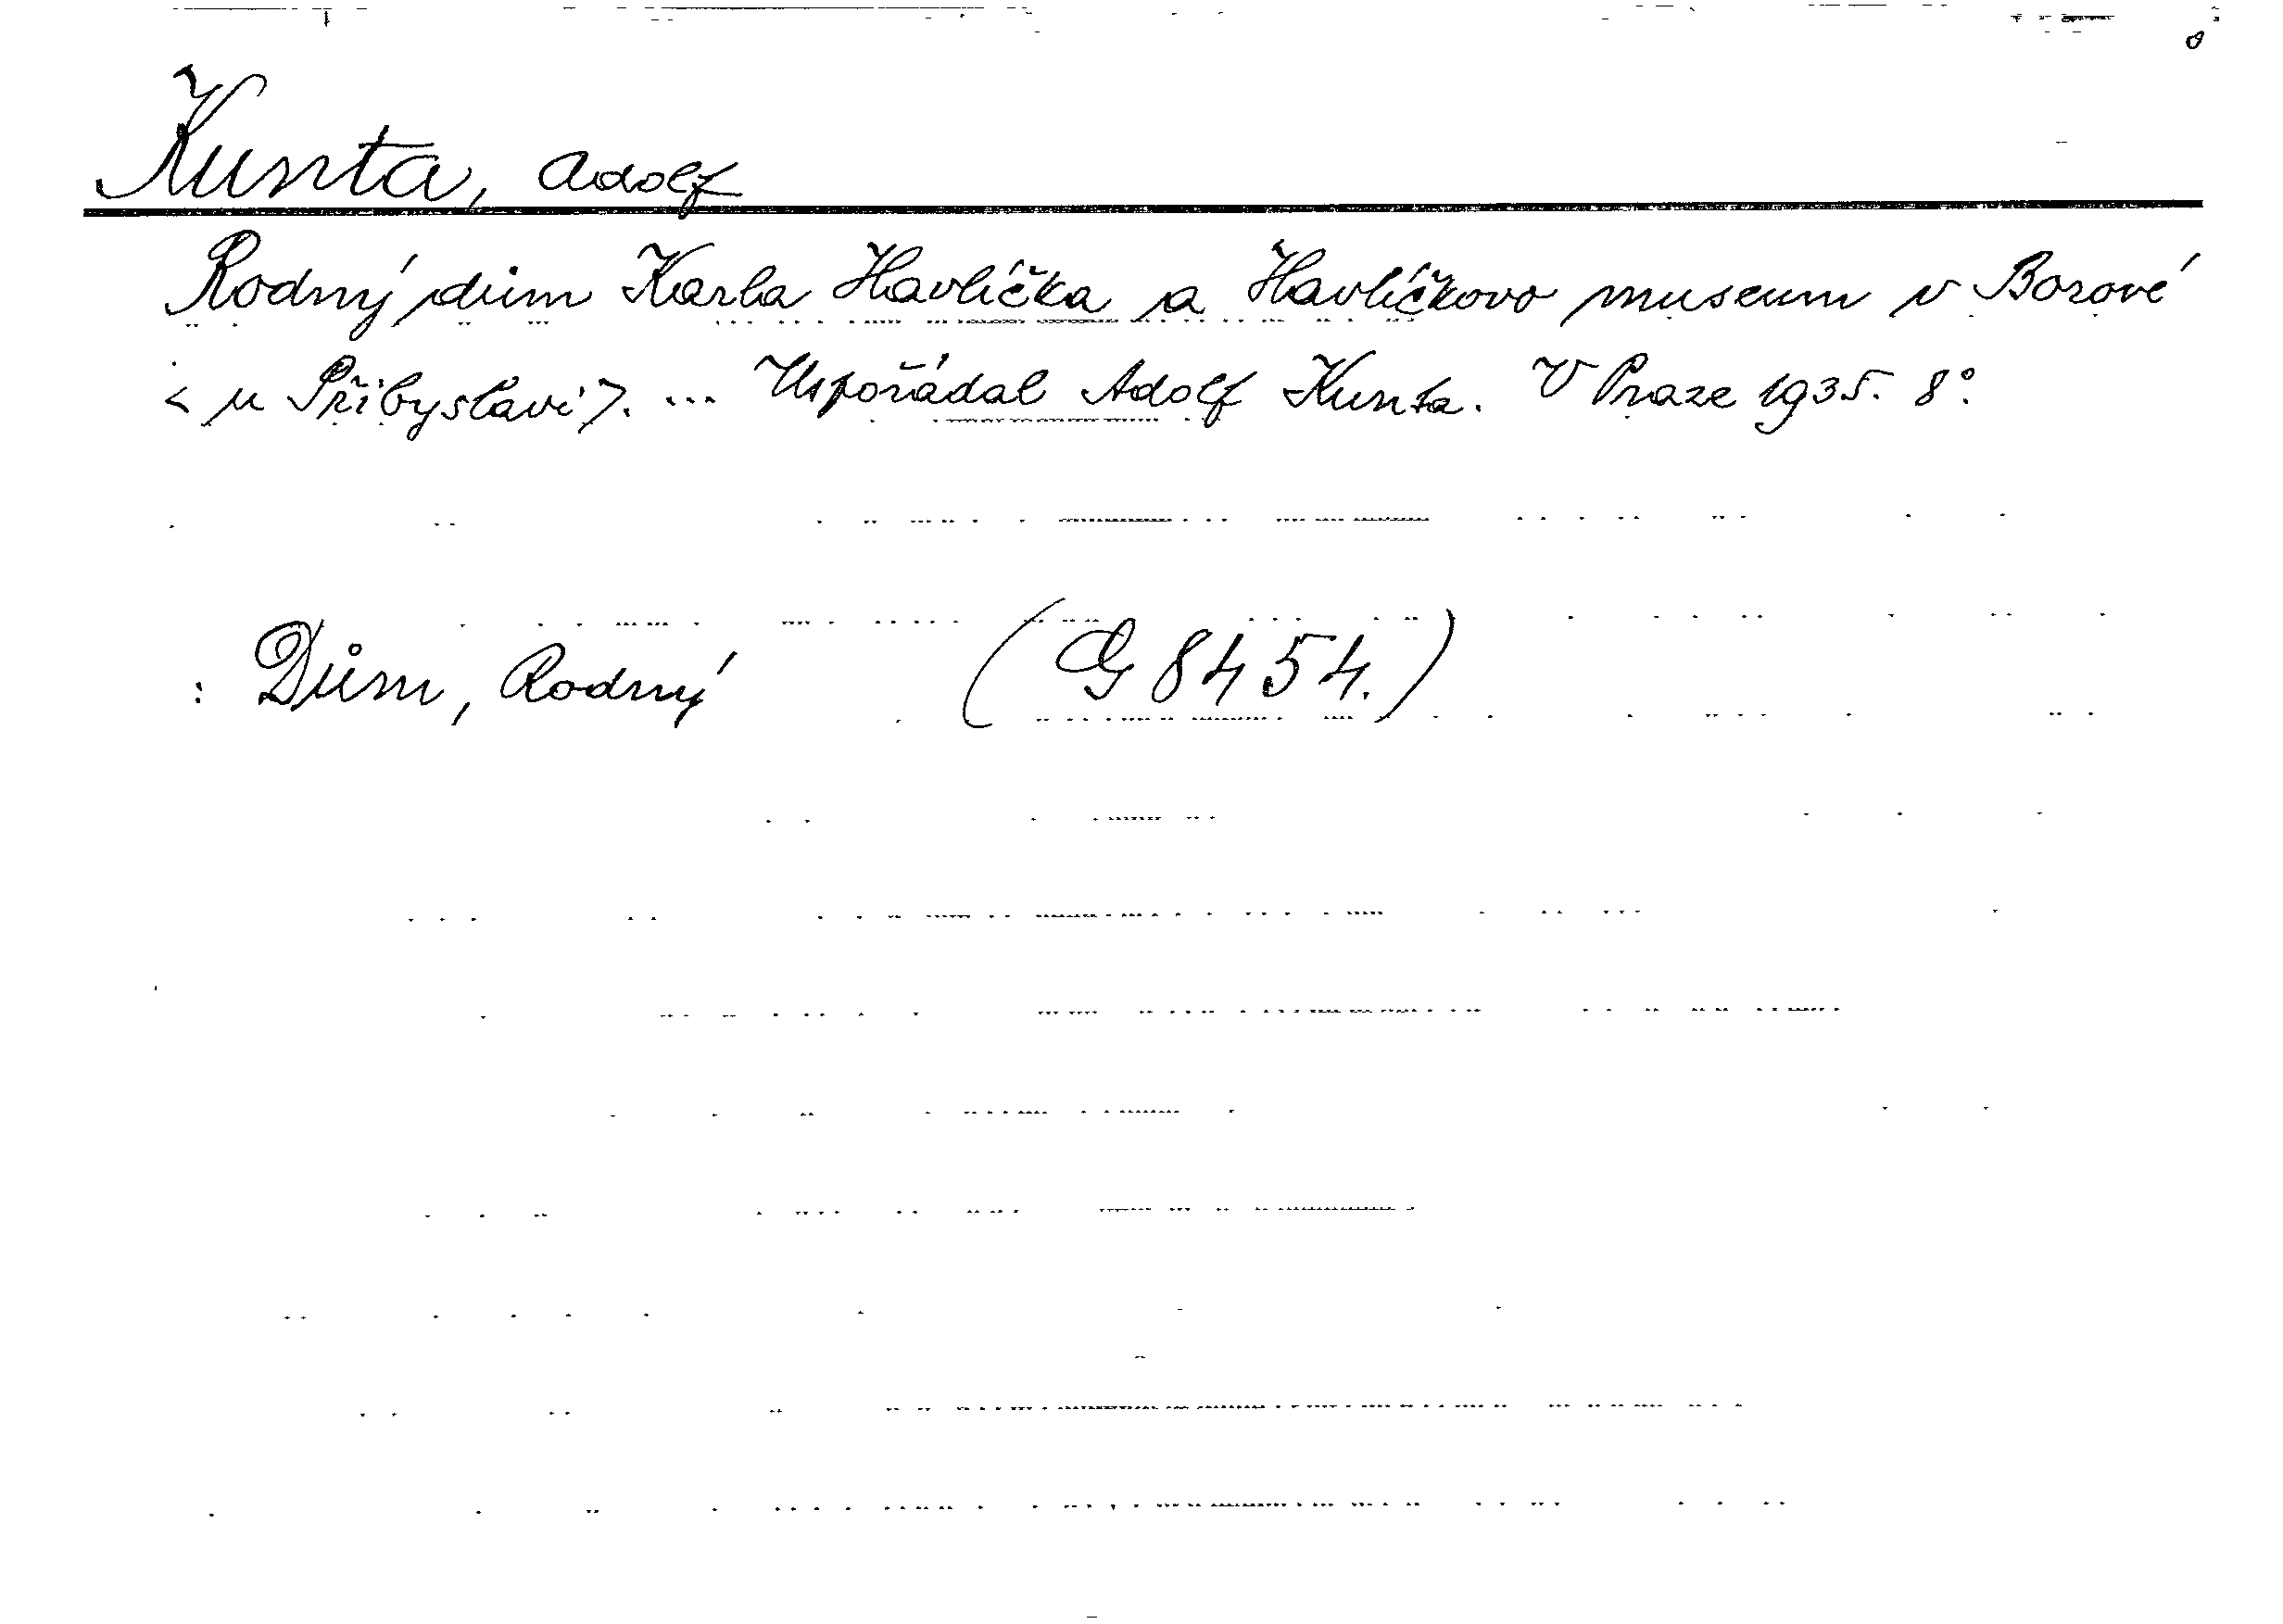 Kunta, Adolf
Rodný dům Karla Havlíčka a Havlíčkovo museum v Borové
< u Přibyslavi >. ... Uspořádal Adolf Kunta. V Praze 1935. 8°.
: Dům, Rodný (G 8454.)